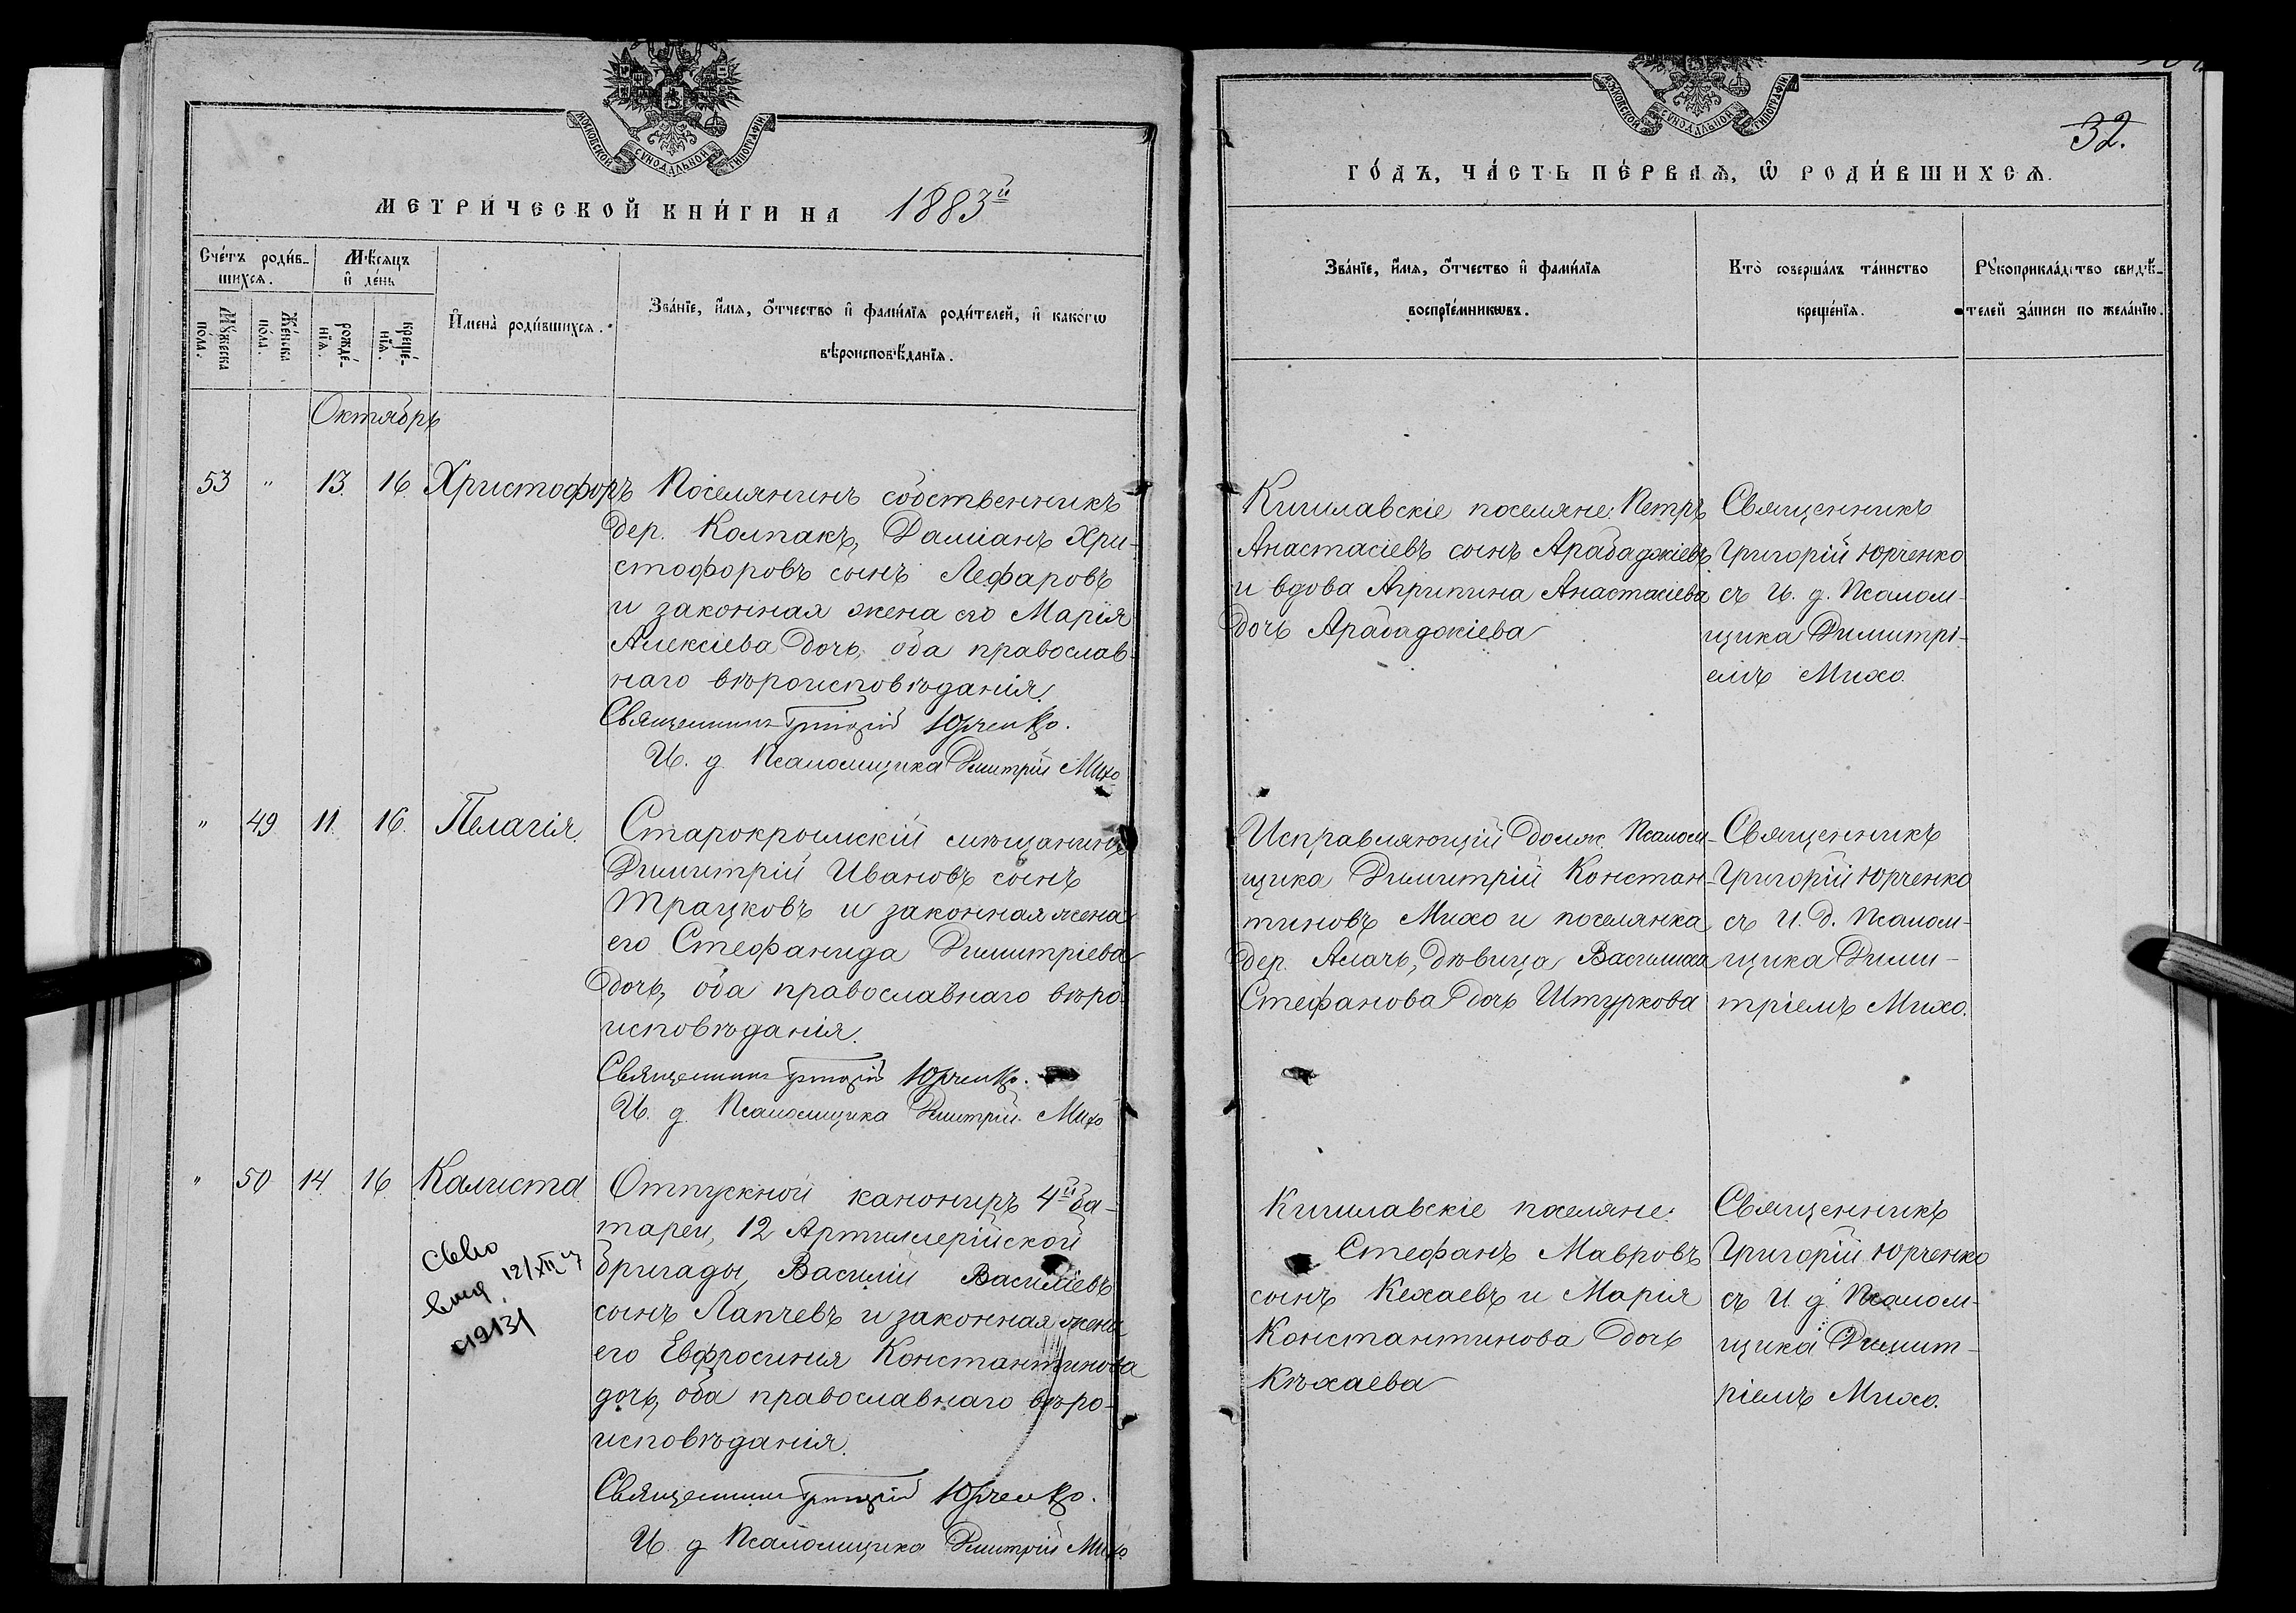 МОСКОВСКОЙ СѴНОДАЛЬНОЙ ТИПОГРАФІИ
МЕТРИ́ЧЕСКОЙ КНИ́ГИ НА 1883й
Сче́тъ роди́в-
шихсѧ.
Мѣ́сяцъ
и҆ де́нь
Мꙋ́жеска
по́ла.
Же́нска
по́ла.
рожде́-
нїѧ.
креще́-
нїѧ.
И҆мена̀ роди́вшихсѧ.
Зва́нїе, и҆́мѧ, ѻ҆́тчество и҆ фамі́лїѧ роди́телей, и҆ како́гѡ
вѣроисповѣ́данїѧ.
Октябрь
53 " 13. 16. Христофоръ
Поселянинъ собственникъ
дер. Колпакъ, Даміанъ Хри-
стофоровъ сынъ Лефаровъ
и законная жена его Марія
Алексіева дочь, оба православ-
наго вѣроисповѣданія.
Священникъ Григорій Юрченко.
И. д. Псаломщика Димитрій Михо
" 49 11. 16. Пелагія.
Старокрымскій мѣщанинъ
Димитрій Ивановъ сынъ
Трацковъ и законная жена
его Стефанида Димитріева
дочь, оба православнаго вѣро-
исповѣданія.
Священникъ Григорій Юрченко.
И. д. Псаломщика Димитрій Михо
" 50 14 16 Калиста
Отпускной канониръ 4й ба-
тареи, 12 Артиллерійской
бригады, Василій Василіевъ
сынъ Лапчевъ и законная жена
его Евфросинія Константинова
дочь, оба православнаго вѣро-
исповѣданія.
Священникъ Григорій Юрченко.
И. д. Псаломщика Димитрій Михо
12/XII
МОСКОВСКОЙ СѴНОДАЛЬНОЙ ТИПОГРАФІИ
32.
ГО́ДЪ, ЧА́СТЬ ПЕ́РВАѦ, Ѽ РОДИ́ВШИХСѦ.
Зва́нїе, и҆́мѧ, ѻ҆́тчество и҆ фамі́лїѧ
воспрїе́мникѡвъ.
Кто̀ соверша́лъ та́инство
креще́нїѧ.
Рꙋкоприкла́дство свидѣ́-
телей за́писи по жела́нїю.
Кишлавскіе поселяне: Петръ
Анастасіевъ сынъ Арабаджіевъ
и вдова Агрипина Анастасіева
дочь Арабаджіева
Священникъ
Григорій Юрченко
съ И. д. Псалом-
щика Димитрі-
емъ Михо.
Исправляющій долж. Псалом-
щика Димитрій Констан-
тиновъ Михо и поселянка
дер. Алачъ, дѣвица Василиса
Стефанова дочь Штуркова
Священникъ
Григорій Юрченко
съ И. д. Псалом-
щика Дими-
тріемъ Михо.
Кишлавскіе поселяне:
Стефанъ Мавровъ
сынъ Кехаевъ и Марія
Константинова дочь
Кѣхаева
Священникъ
Григорій Юрченко
съ И. д. Псалом-
щика Димит-
ріемъ Михо.